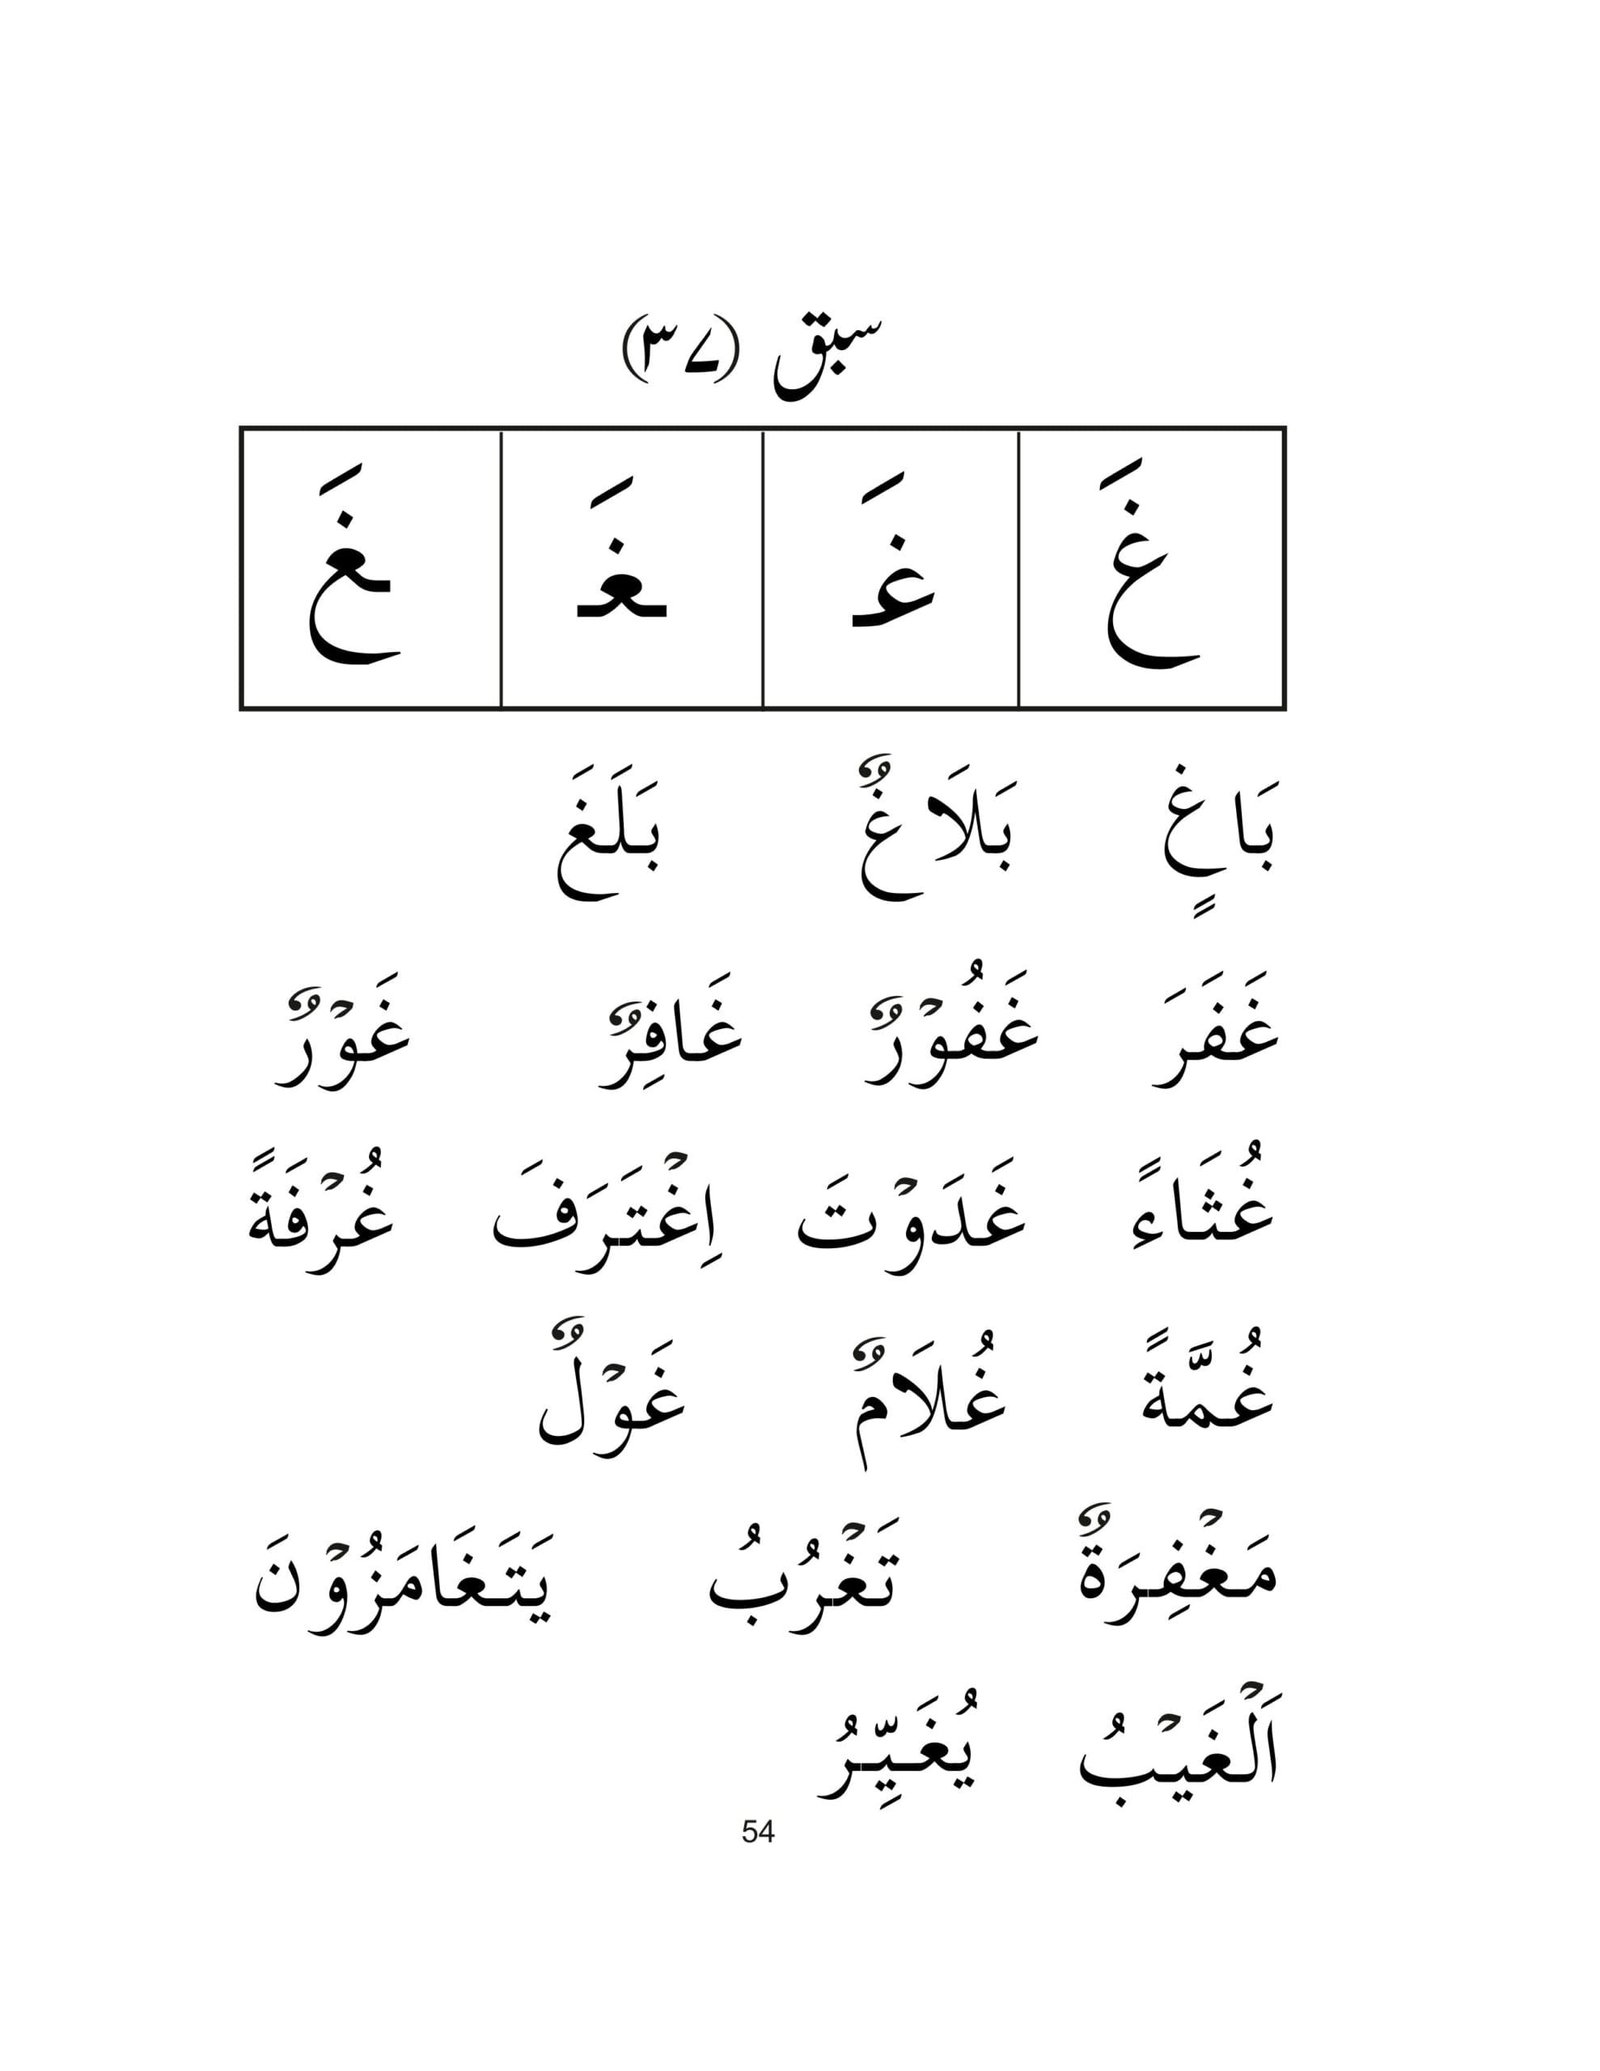 سبق (۳۷)
غَ غَـ ـغَـ ـغَ
بَاغٍ بَلَاغٌ بَلَغَ
غَفَرَ غَفُوْرٌ غَافِرٌ غَوْرٌ
غُثَاءً غَدَوْتَ اِغْتَرَفَ غُرْفَةً
غُمَّةً غُلَامٌ غَوْلٌ
مَغْفِرَةٌ تَغْرُبُ يَتَغَامَزُوْنَ
اَلْغَيْبُ يُغَيِّرُ
54